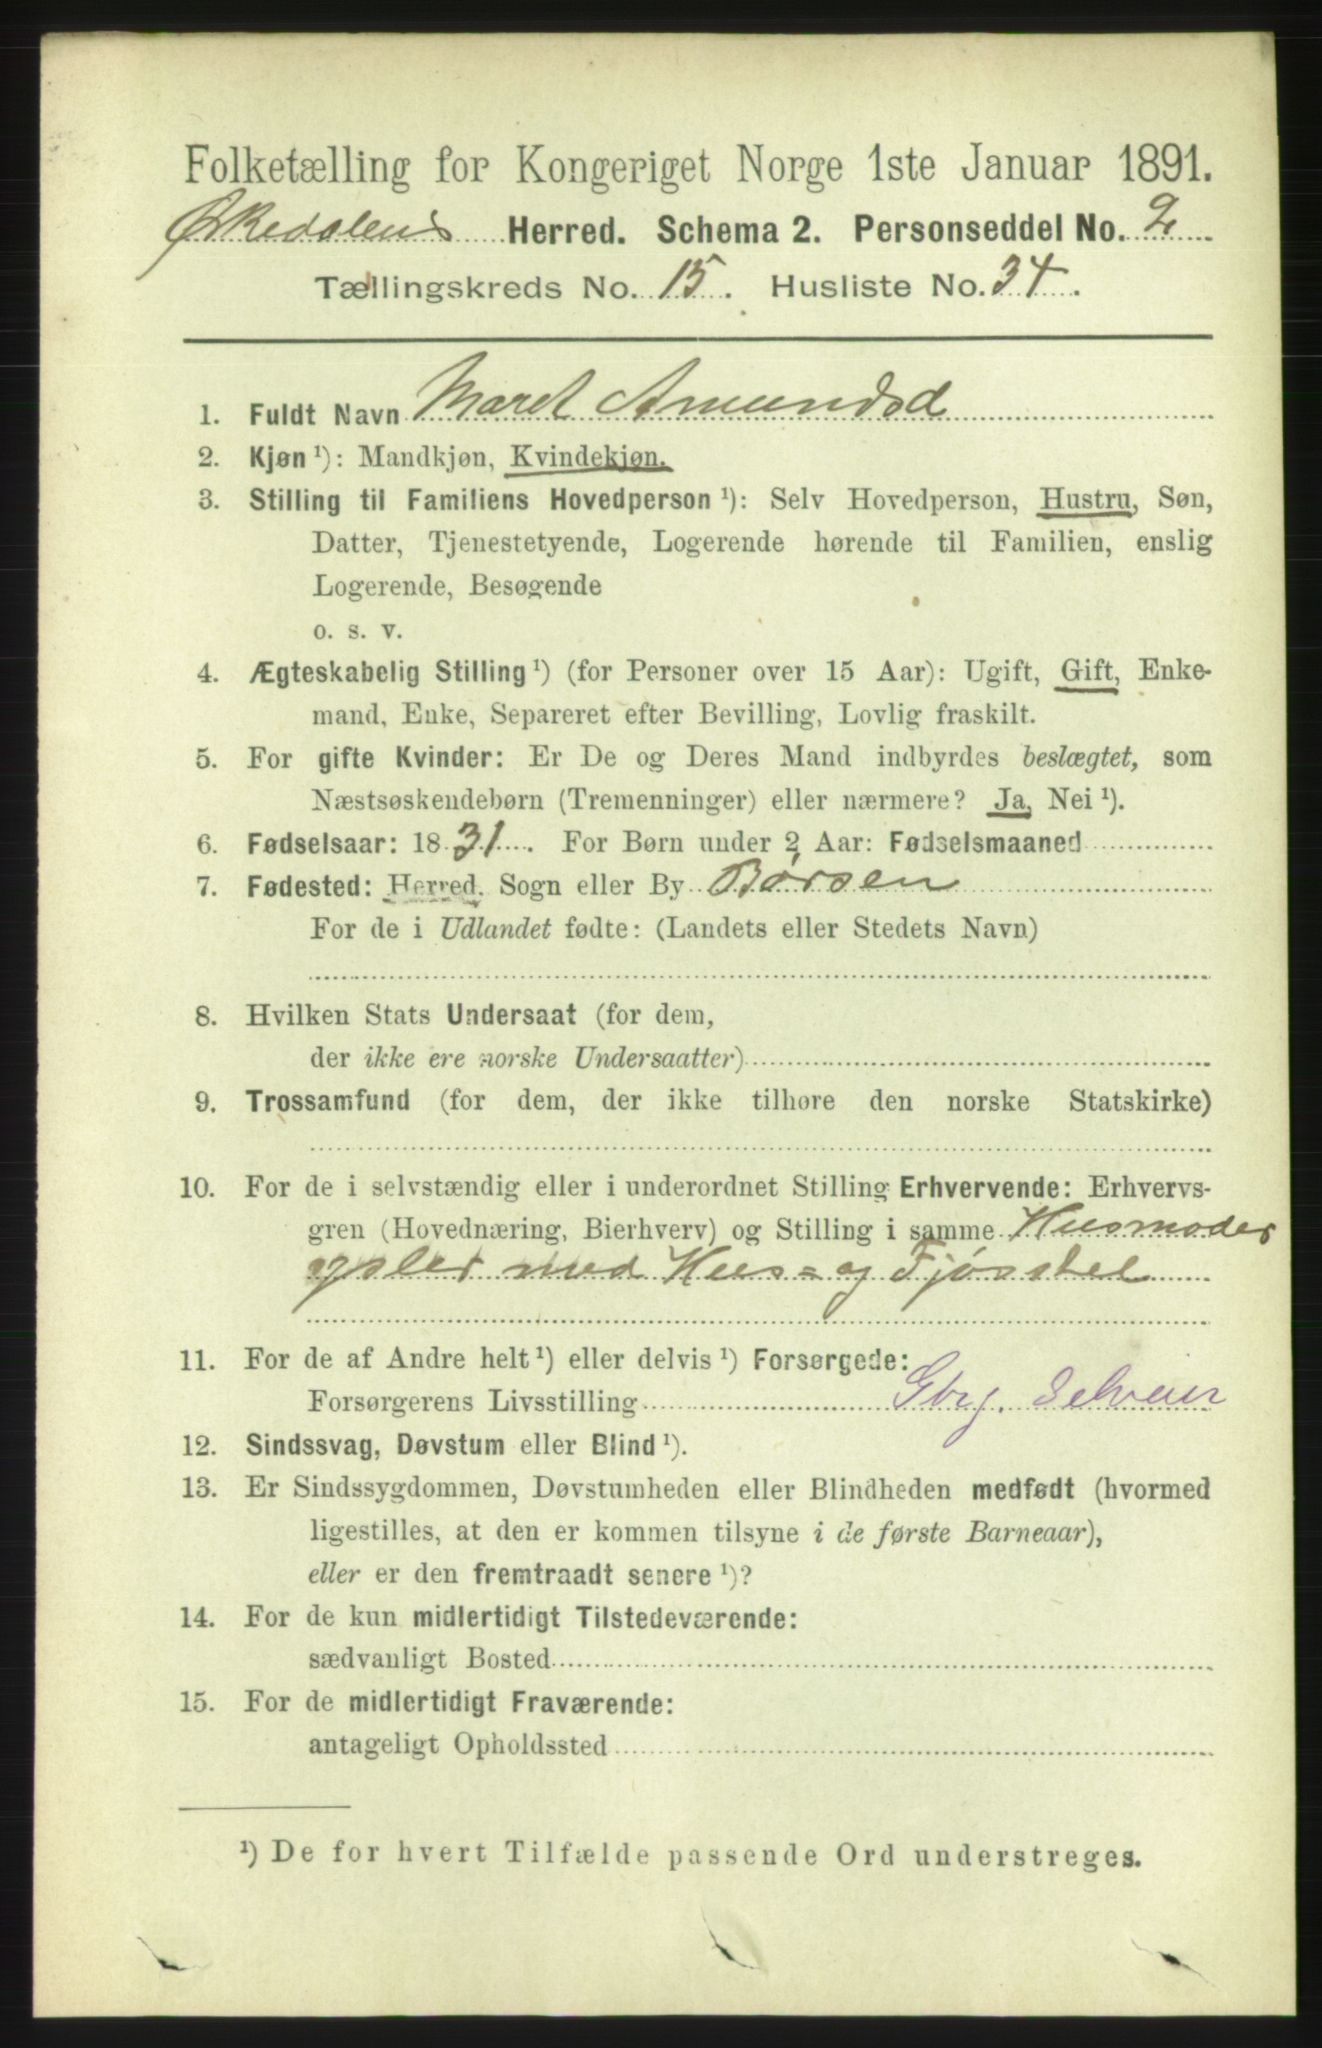 Folketælling for Kongeriget Norge 1ste Januar 1891.
Ørkedalens Herred. Schema 2. Personseddel No. 2
Tællingskreds No. 15. Husliste No. 34.
1. Fuldt Navn Maret Amundsd
2. Kjøn ¹): Mandkjøn, Kvindekjøn.
3. Stilling til Familiens Hovedperson ¹): Selv Hovedperson, Hustru, Søn,
Datter, Tjenestetyende, Logerende hørende til Familien, enslig
Logerende, Besøgende
o. s. v.
4. Ægteskabelig Stilling ¹) (for Personer over 15 Aar): Ugift, Gift, Enke-
mand, Enke, Separeret efter Bevilling, Lovlig fraskilt.
5. For gifte Kvinder: Er De og Deres Mand indbyrdes beslægtet, som
Næstsøskendebørn (Tremenninger) eller nærmere? Ja, Nei ¹).
6. Fødselsaar: 1831. For Børn under 2 Aar: Fødselsmaaned
7. Fødested: Herred, Sogn eller By Børsen
For de i Udlandet fødte: (Landets eller Stedets Navn)
8. Hvilken Stats Undersaat (for dem,
der ikke ere norske Undersaatter)
9. Trossamfund (for dem, der ikke tilhøre den norske Statskirke)
10. For de i selvstændig eller i underordnet Stilling Erhvervende: Erhvervs-
gren (Hovednæring, Bierhverv) og Stilling i samme Husmoder
sysler med Hus= og Fjøsstel
11. For de af Andre helt ¹) eller delvis ¹) Forsørgede:
Forsørgerens Livsstilling Gbrg. Selveier
12. Sindssvag, Døvstum eller Blind ¹).
13. Er Sindssygdommen, Døvstumheden eller Blindheden medfødt (hvormed
ligestilles, at den er kommen tilsyne i de første Barneaar),
eller er den fremtraadt senere ¹)?
14. For de kun midlertidigt Tilstedeværende:
sædvanligt Bosted
15. For de midlertidigt Fraværende:
antageligt Opholdssted
¹) De for hvert Tilfælde passende Ord understreges.